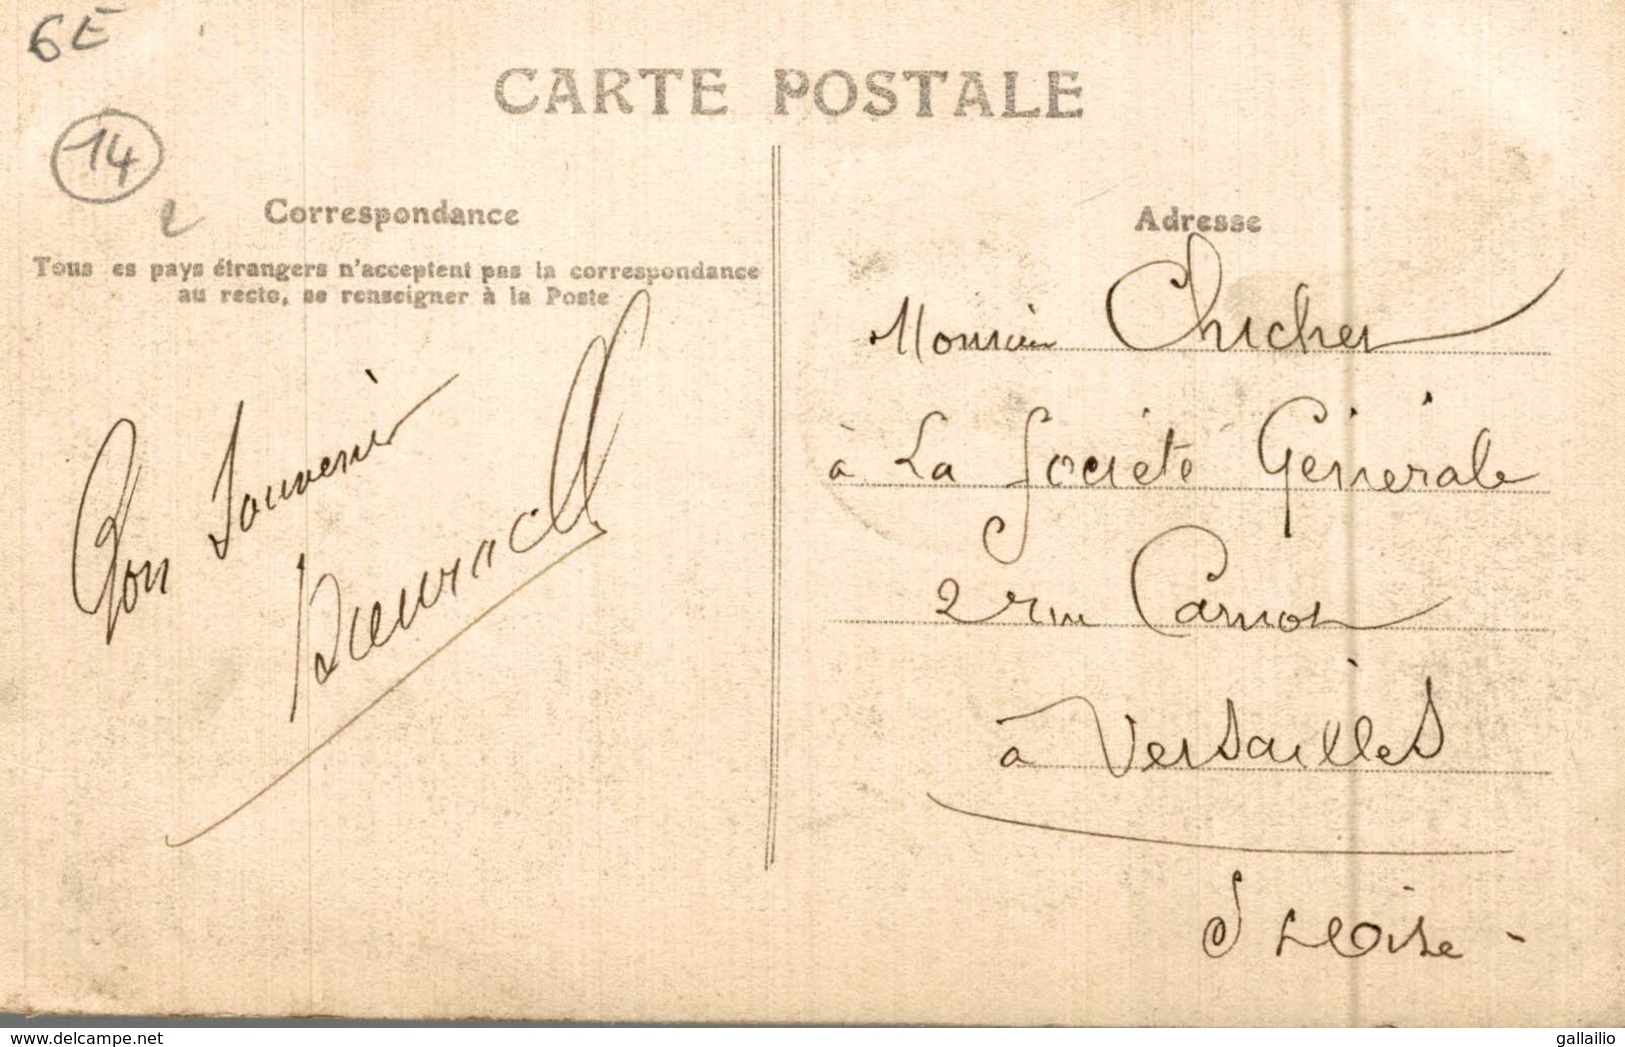 6E
CARTE POSTALE
14
Correspondance
Tous es pays étrangers n'acceptent pas la correspondance
au recto, se renseigner à la Poste
Bon Souvenir
Adresse
Monsieur
à La Société Générale
2 rue Carnot
à Versailles
S & Oise -
www.delcampe.net
gallailio